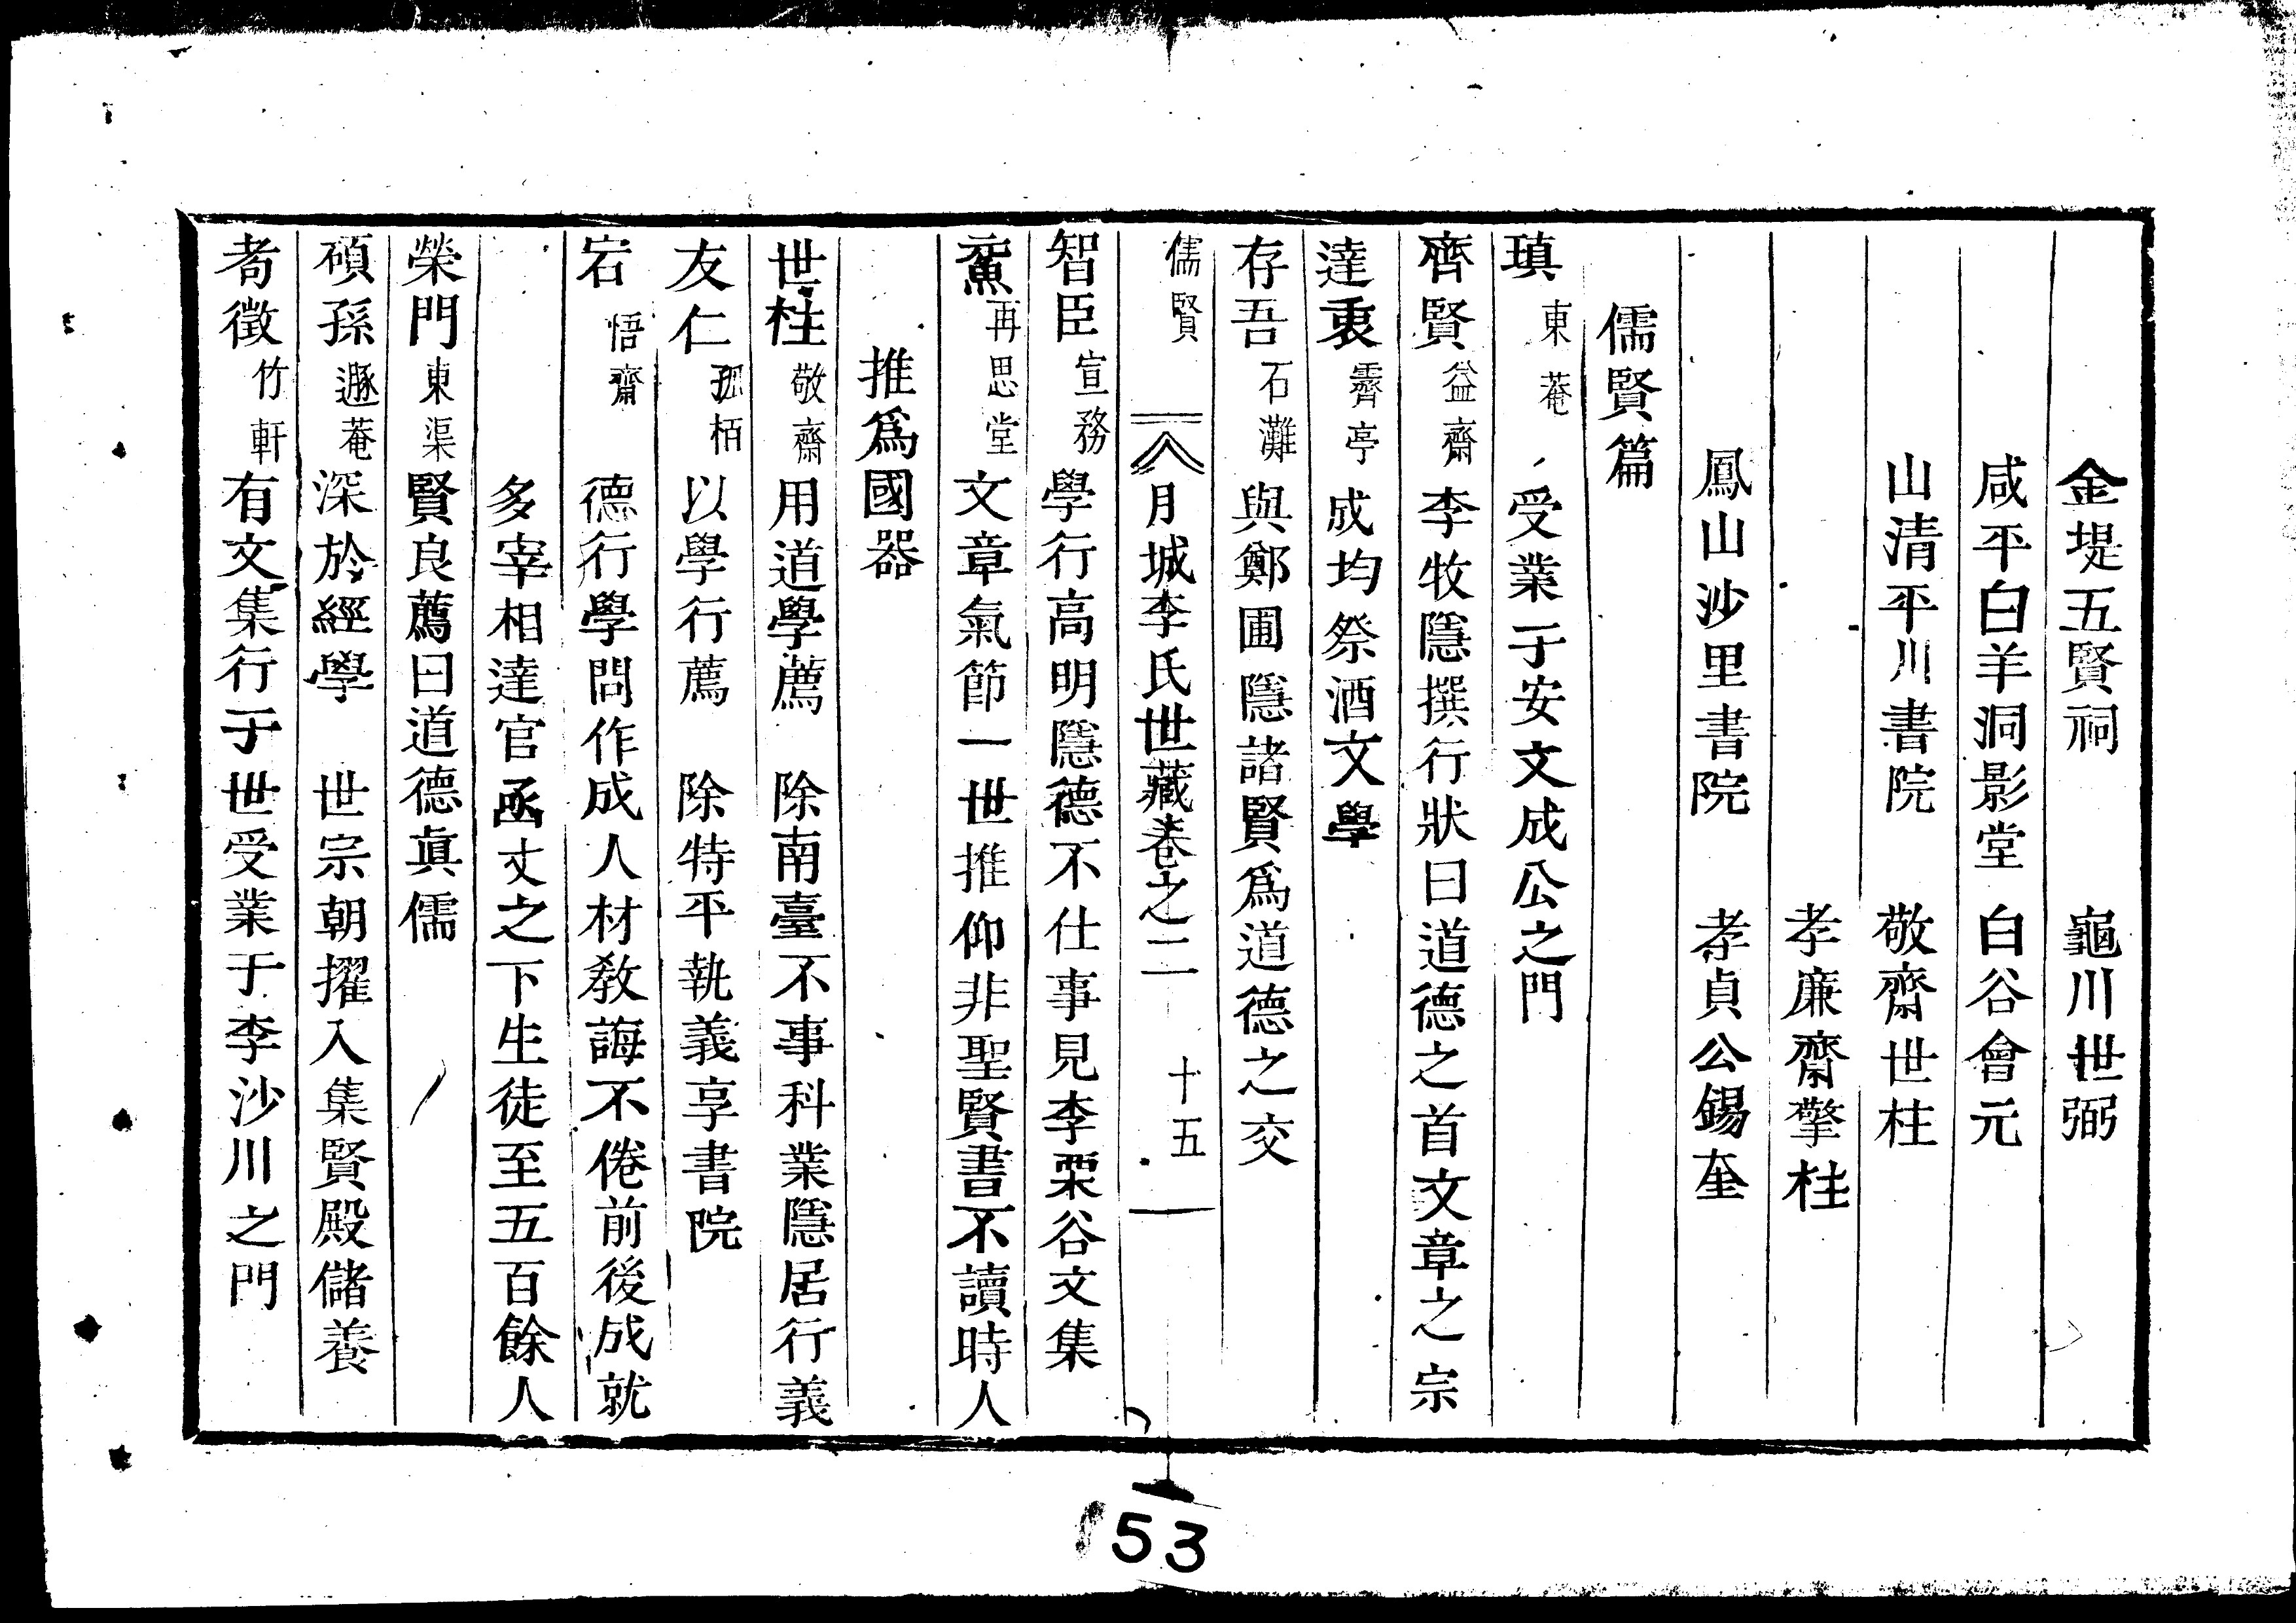 金堤五賢祠　龜川世弼
咸平白羊洞影堂　白谷會元
山清平川書院　敬齋世柱
孝廉齋擎柱
鳳山沙里書院　孝貞公錫奎
儒賢篇
瑱 東菴 受業于安文成公之門
齊賢 益齋 李牧隱撰行狀曰道德之首文章之宗
達衷 霽亭 成均祭酒文學
存吾 石灘 與鄭圃隱諸賢爲道德之交
儒賢　月城李氏世藏卷之二　十五
智臣 宣務 學行高明隱德不仕事見李栗谷文集
黿 再思堂 文章氣節一世推仰非聖賢書不讀時人
推爲國器
世柱 敬齋 用道學薦　除南臺不事科業隱居行義
友仁 孤栢 以學行薦　除特平執義享書院
宕 悟齋 德行學問作成人材教誨不倦前後成就
多宰相達官函丈之下生徒至五百餘人
榮門 東渠 賢良薦曰道德眞儒
碩孫 遯菴 深於經學　世宗朝擢入集賢殿儲養
耇徵 竹軒 有文集行于世受業于李沙川之門
53